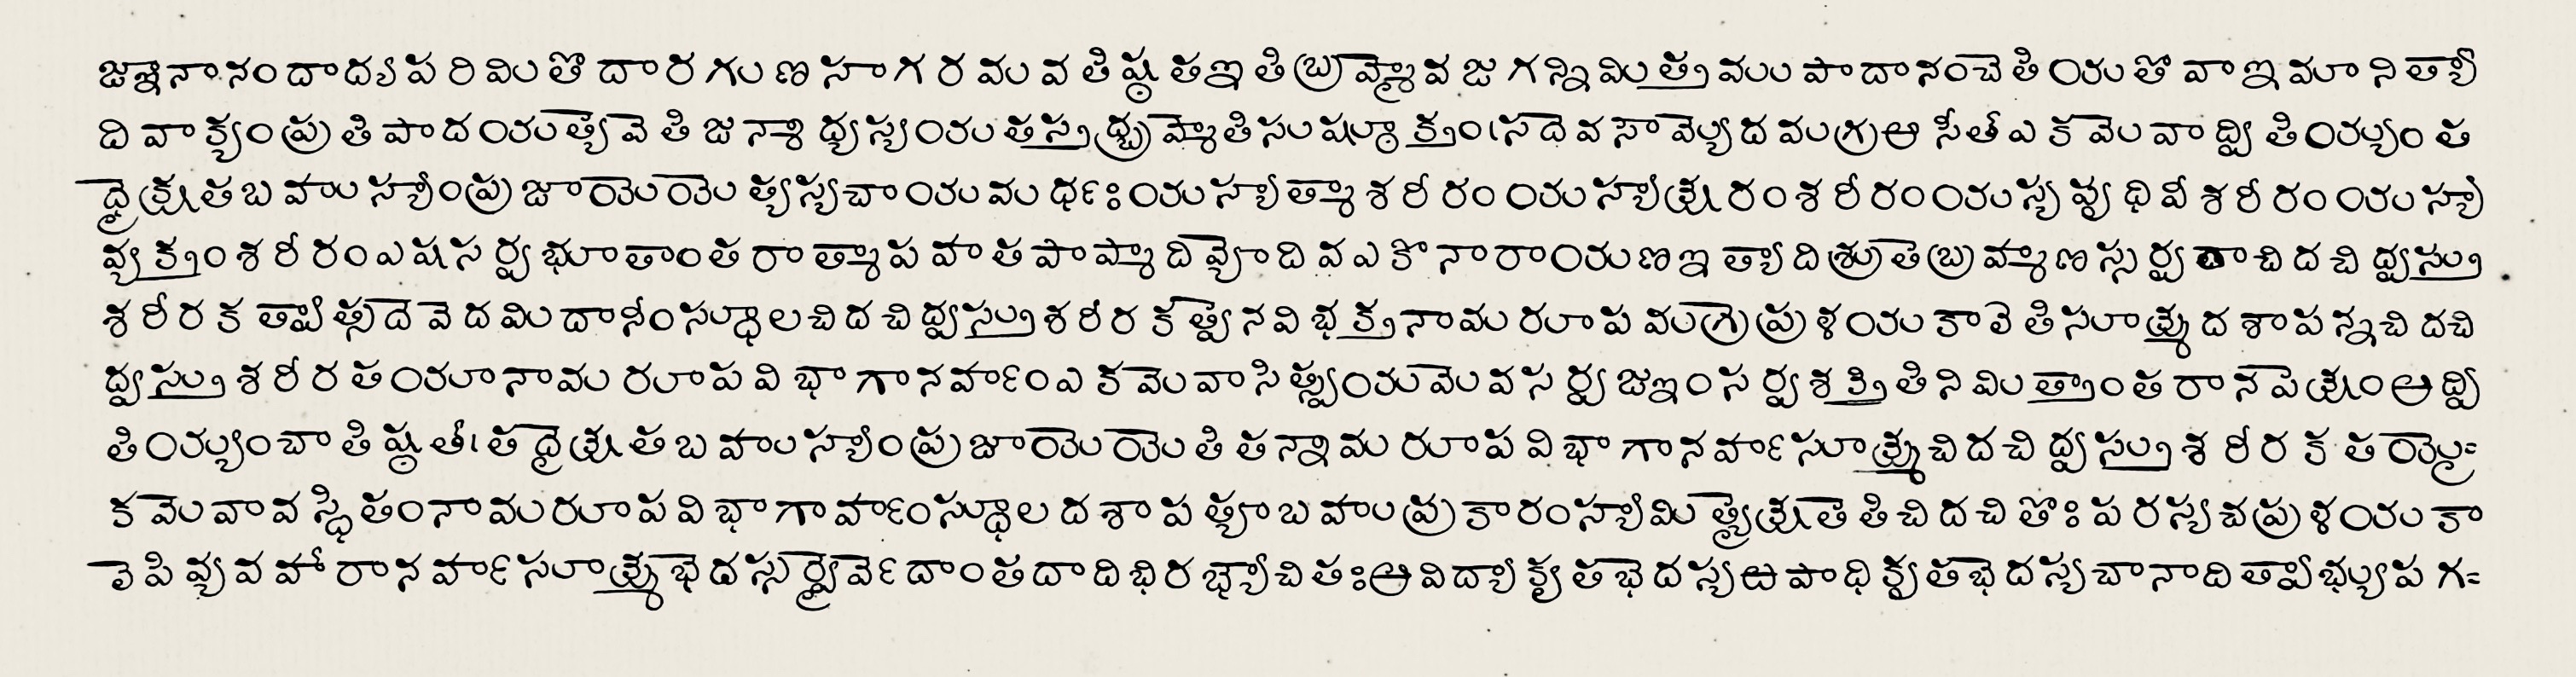 జ్ఞానానందాద్యపరిమితొదారగుణసాగరమవతిష్ఠతఇతిబ్రహ్మైవజగన్నిమిత్తముపాదానంచెతియతోవాఇమానిత్యా
దివాక్యంప్రతిపాదయత్యెవెతిజన్మాద్యస్యయతస్తద్బ్రహ్మెతిసుషూక్తం।సదెవసొమ్యెదమగ్రఆసీతఏకమెవాద్వితియ్యంత
దైక్షతబహుస్యాంప్రజాయెయెత్యస్యచాయమర్థఃయస్యాత్మాశరీరంయస్యాక్షరంశరీరంయస్యపృథివీశరీరంయస్యా
వ్యక్తంశరీరంఎషసర్వభూతాంతరాత్మాపహతపాప్మాదివ్యొదెవఎకొనారాయణఇత్యాదిశ్రుతెబ్రహ్మణస్సర్వదాచిదచిద్వస్తు
శరీరకత్వాత్సదెవెదమిదానీంస్థూలచిదచిద్వస్తుశరీరకత్వెనవిభక్తనామరూపమగ్రెప్రళయకాలెతిసూక్ష్మదశాపన్నచిదచి
ద్వస్తుశరీరతయానామరూపవిభాగానర్హంఎకమెవాసిత్స్వయమెవసర్వజ్ఞంసర్వశక్తితినిమిత్తాంతరానపెక్షంఅద్వి
తియ్యంచాతిష్ఠతీ।తదైక్షతబహుస్యాంప్రజాయెయెతితన్నామరూపవిభాగానర్హసూక్ష్మచిదచిద్వస్తుశరీరకతయై=
కమెవావస్థితంనామరూపవిభాగార్హంస్థూలదశాపత్యాబహుప్రకారంస్యామిత్యైక్షతెతిచిదచితొఃపరస్యచప్రళయకా
లెపివ్యవహారానర్హసూక్ష్మభెదస్సర్వైర్వెదాంతదాదిభిరభ్యొచితఃఅవిద్యాకృతభెదస్యఉపాధికృతభెదస్యచానాదితావాభ్యుపగ=